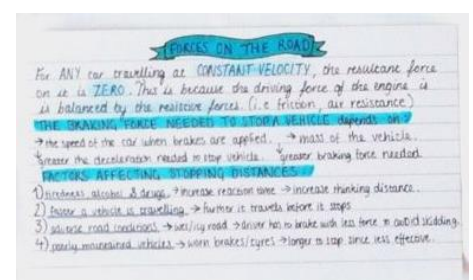 FORCES ON THE ROAD
For ANY car travelling at CONSTANT VELOCITY, the resultant force
on it is ZERO. This is because the driving force of the engine is
is balanced by the resistive forces. (i.e friction, air resistance)
THE BRAKING FORCE NEEDED TO STOP A VEHICLE depends on:
→ the speed of the car when brakes are applied. → mass of the vehicle.
greater the deceleration needed to stop vehicle. greater braking force needed.
FACTORS AFFECTING STOPPING DISTANCES:
1) tiredness, alcohol & drugs → increase reaction time → increase thinking distance.
2) faster a vehicle is travelling → further it travels before it stops
3) adverse road conditions → wet/icy road → driver has to brake with less force to avoid skidding.
4) poorly maintained vehicles → worn brakes/tyres → longer to stop since less effective.